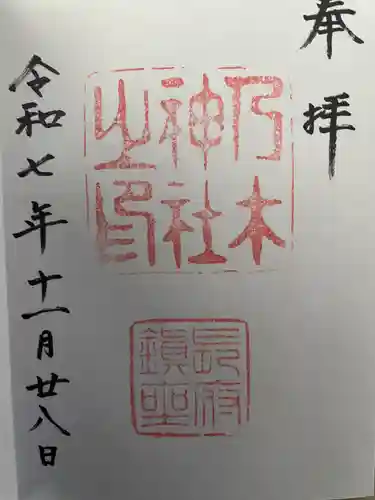 奉拝
乃木
神社
之印
長府
鎮聖
令和七年十一月廿八日